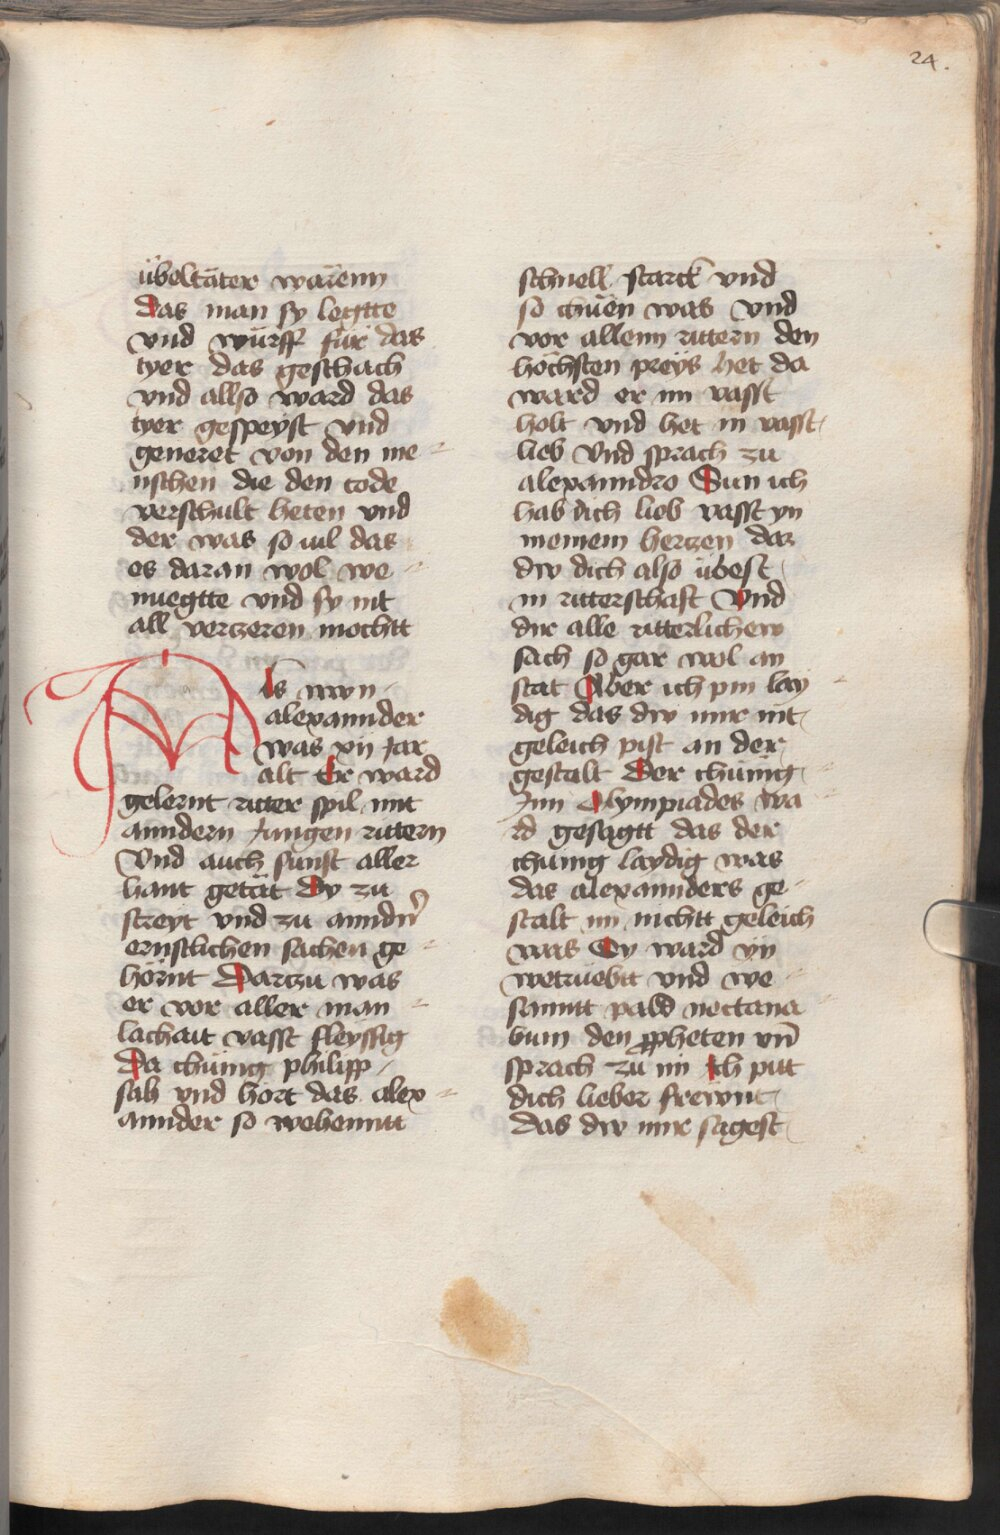 24.
übeltäter wärenn
das man sy legtte
vnd würff für das
tyer das geschach
vnd allso ward das
tyer gespeyst vnd
generet von den me-
nschen die den tode
verschult heten vnd
der was so uil das
es daran wol we-
nuegtte vnd sy nit
all verzeren mochtt
Als nwn
alexannder
was xij jar
alt Er ward
gelernt ritter spil mit
anndern jungen rittern
Vnd auch sunst aller
hant getät Dy zu
streyt vnd zu anndern
ernstlichen sachen ge-
hörnt Darzu was
er vor aller man-
lachait vasst fleyssig
Da chünig philipp
sah vnd hort das alex-
annder so wehenntt
schnell starck vnd
so chüen was vnd
vor allenn rittern den
höchsten preys het da
ward er im vasst
holt vnd het in vasst
lieb Vnd sprach zu
alexanndro Sun ich
hab dich lieb vasst yn
meinem hertzen daz
dw dich also übest
in ritterschaft Vnd
dir alle ritterlichew
sach so gar wol an
stat Aber ich pin lay
dig das dw mir nit
geleich pist an der
gestalt Der chünig-
inn Olympiades wa
rd gesagtt das der
chünig laydig was
das alexannders ge-
stalt im nichtt geleich
was Sy ward yn
wetruebtt vnd we-
sanntt pald nectana
bum den ꝓpheten vn̄
sprach zu im Ich pitt
dich lieber frewnt
das dw mir sagest